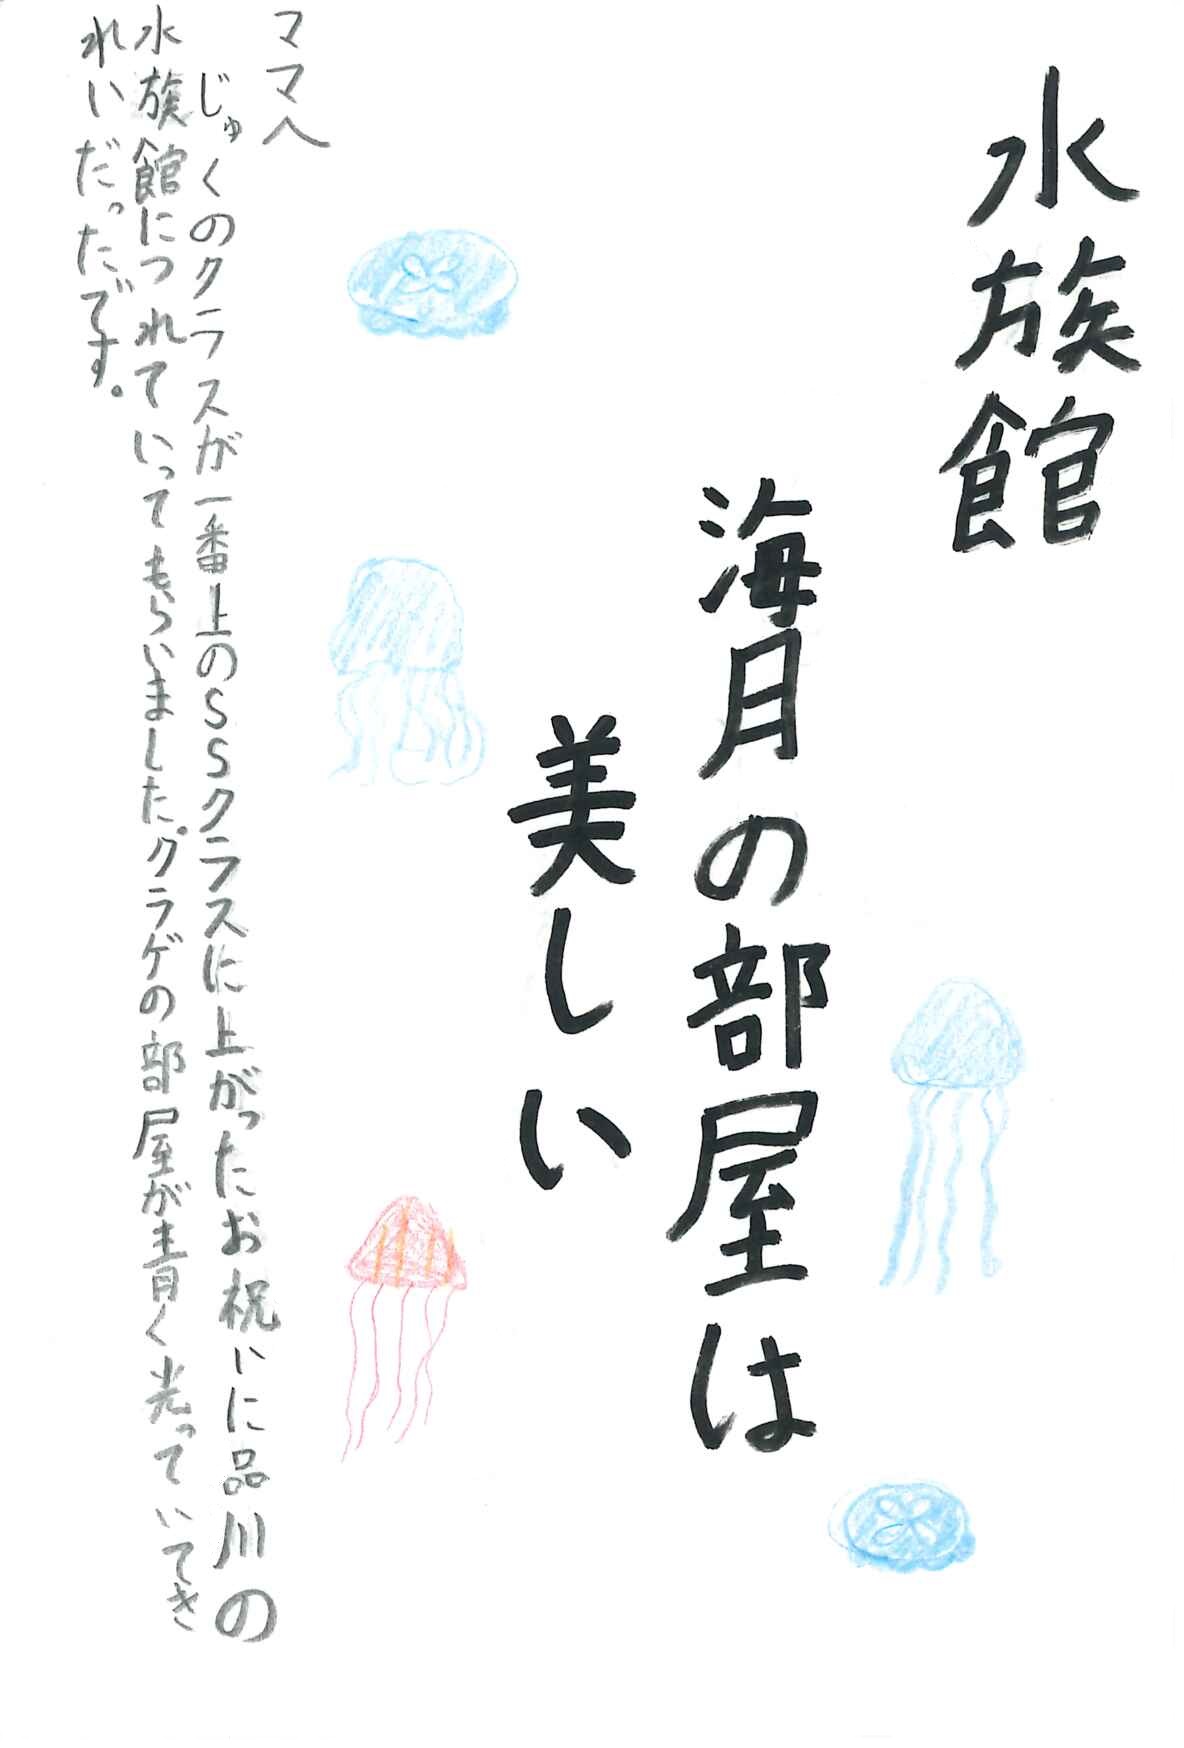 水族館
海月の部屋は
美しい
ママへ
じゅくのクラスが一番上のSSクラスに上がったお祝いに品川の
水族館につれていってもらいました。クラゲの部屋が青く光っていてき
れいだったです。